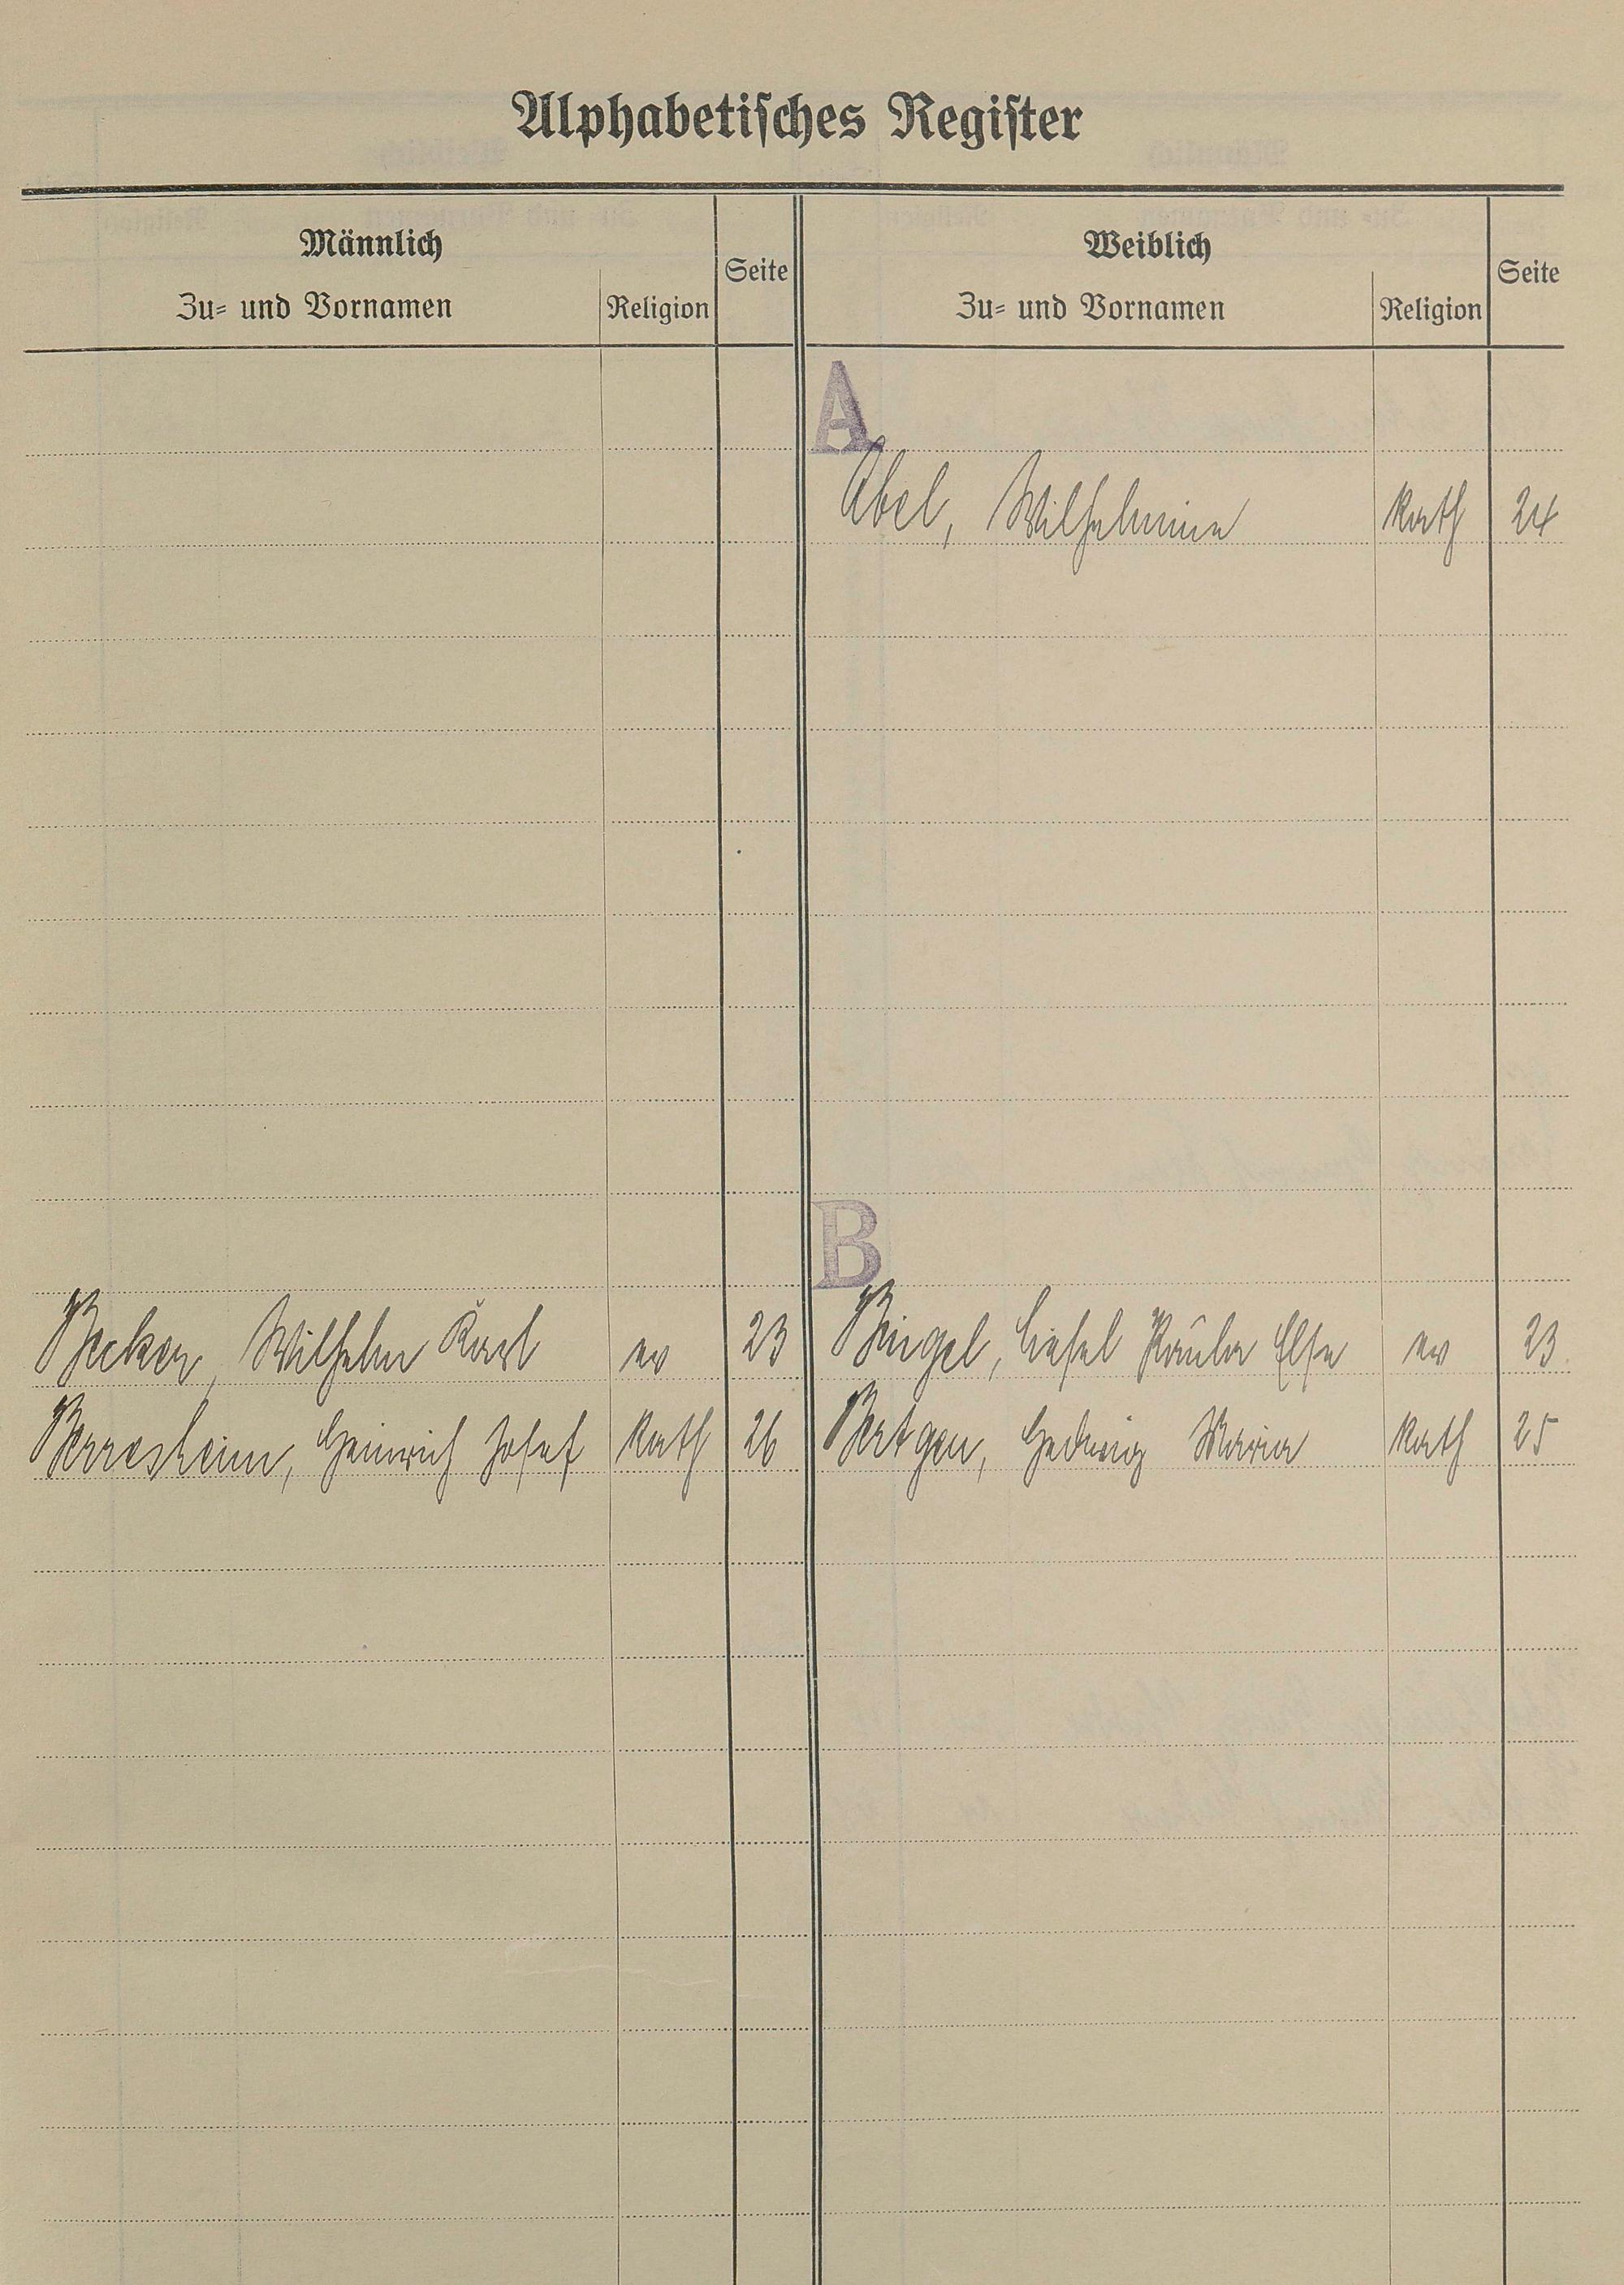 Alphabetisches Register
Männlich Weiblich
Seite Seite
Zu- und Vornamen Religion Zu- und Vornamen Religion
A
Abel, Wilhelmine Kath 24
B
Becker, Wilhelm Karl ev 23 Bingel, Liesel Paula Else ev 23
Berresheim, Heinrich Josef Kath 26 Bertgen, Hedwig Maria Kath 25